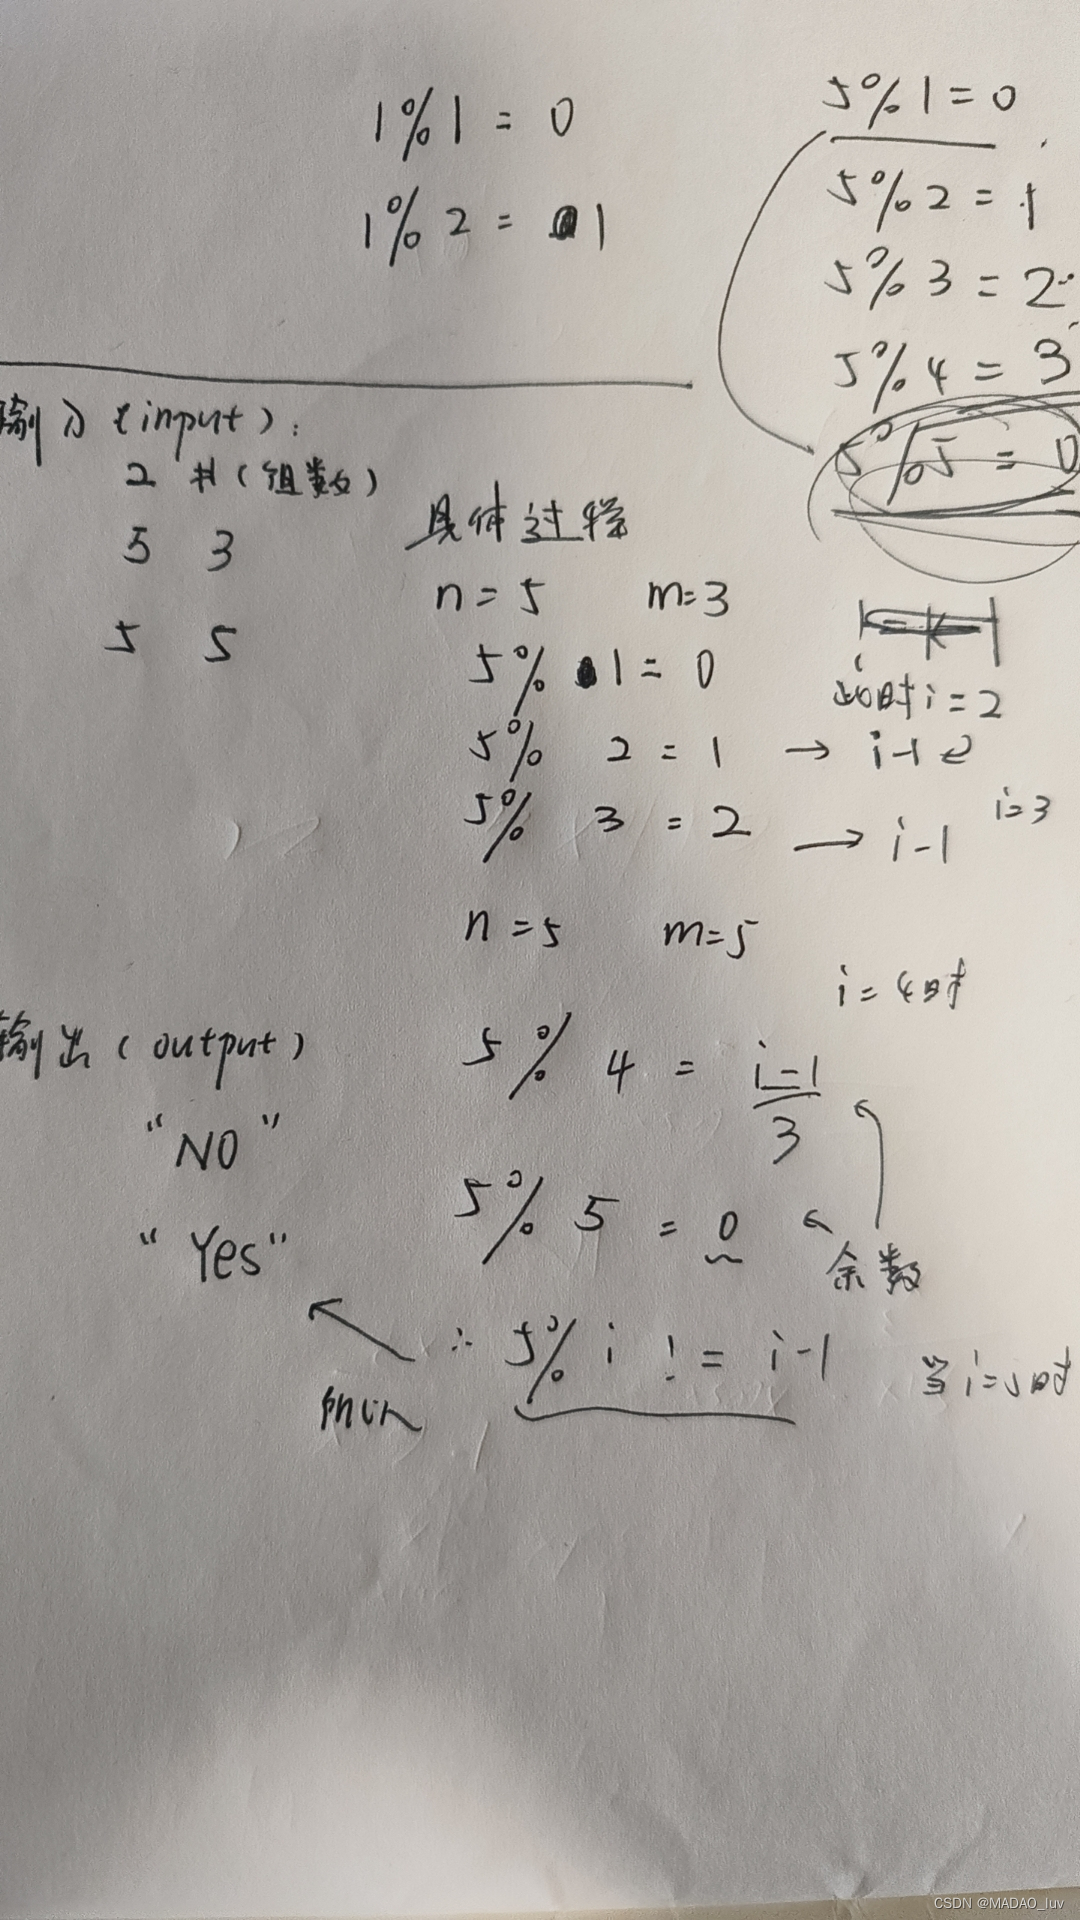 1%1=0
1%2=1
5%1=0
5%2=1
5%3=2
5%4=3
5%5=0
输入(input):
2 #(组数)
5 3
5 5
具体过程
n=5 m=3
5%1=0
5% 2=1 → i-1
此时i=2
5% 3=2 → i-1
i=3
n=5 m=5
i=4时
5% 4 = i-1
3
5% 5 = 0
余数
输出(output)
"NO"
"Yes"
∴ 5% i != i-1 当i=5时
所以
CSDN @MADAO_luv